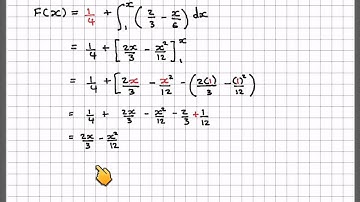 F(x) = 1/4 + ∫₁ˣ (2/3 - x/6) dx
= 1/4 + [2x/3 - x²/12]₁ˣ
= 1/4 + [2x/3 - x²/12 - (2(1)/3 - (1)²/12)
= 1/4 + 2x/3 - x²/12 - 2/3 + 1/12
= 2x/3 - x²/12